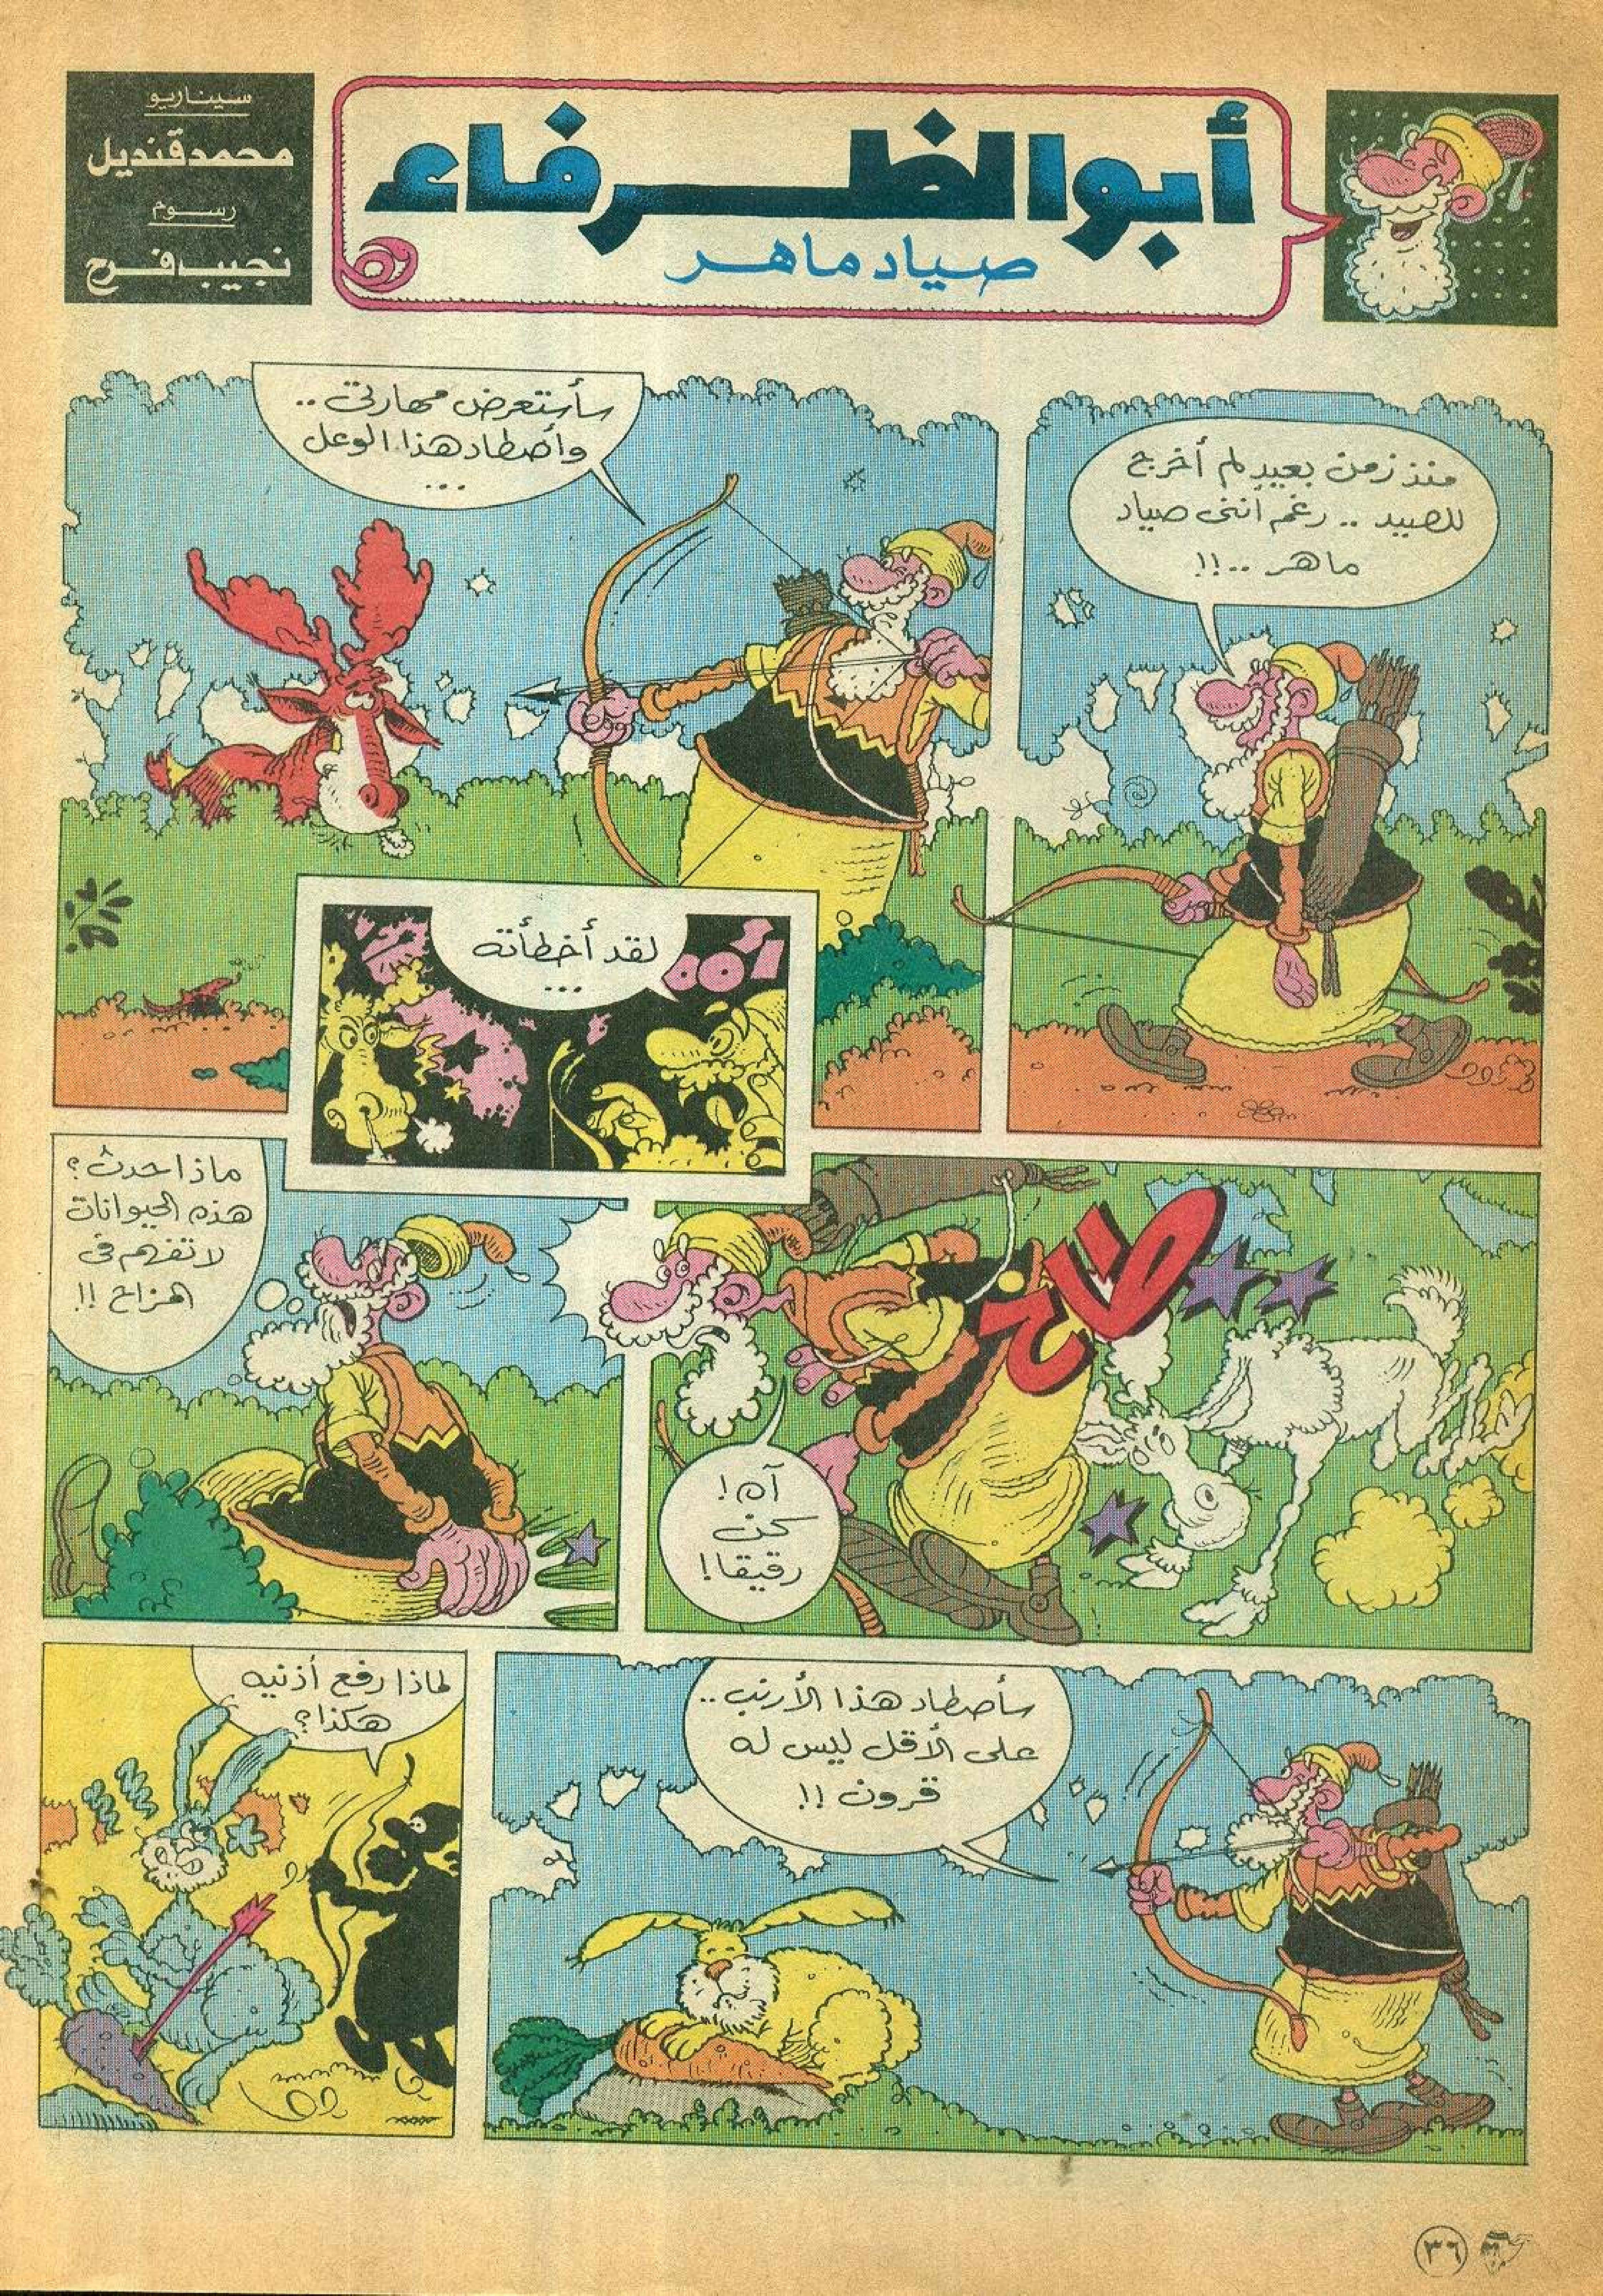 أبو الظرفاء
صياد ماهر
سيناريو
محمد قنديل
رسوم
نجيب فرح
منذ زمن بعيد لم أخرج
للصيد .. رغم أننى صياد
ماهر ..!!
سأستعرض مهارتى ..
وأصطاد هذا الوعل
...
لقد أخطأته
...
طاخ
آه!
كن
رقيقا!
ماذا حدث؟
هذه الحيوانات
لا تفهم فى
المزاح !!
سأصطاد هذا الأرنب ..
على الأقل ليس له
قرون !!
لماذا رفع أذنيه
هكذا؟
٣٦